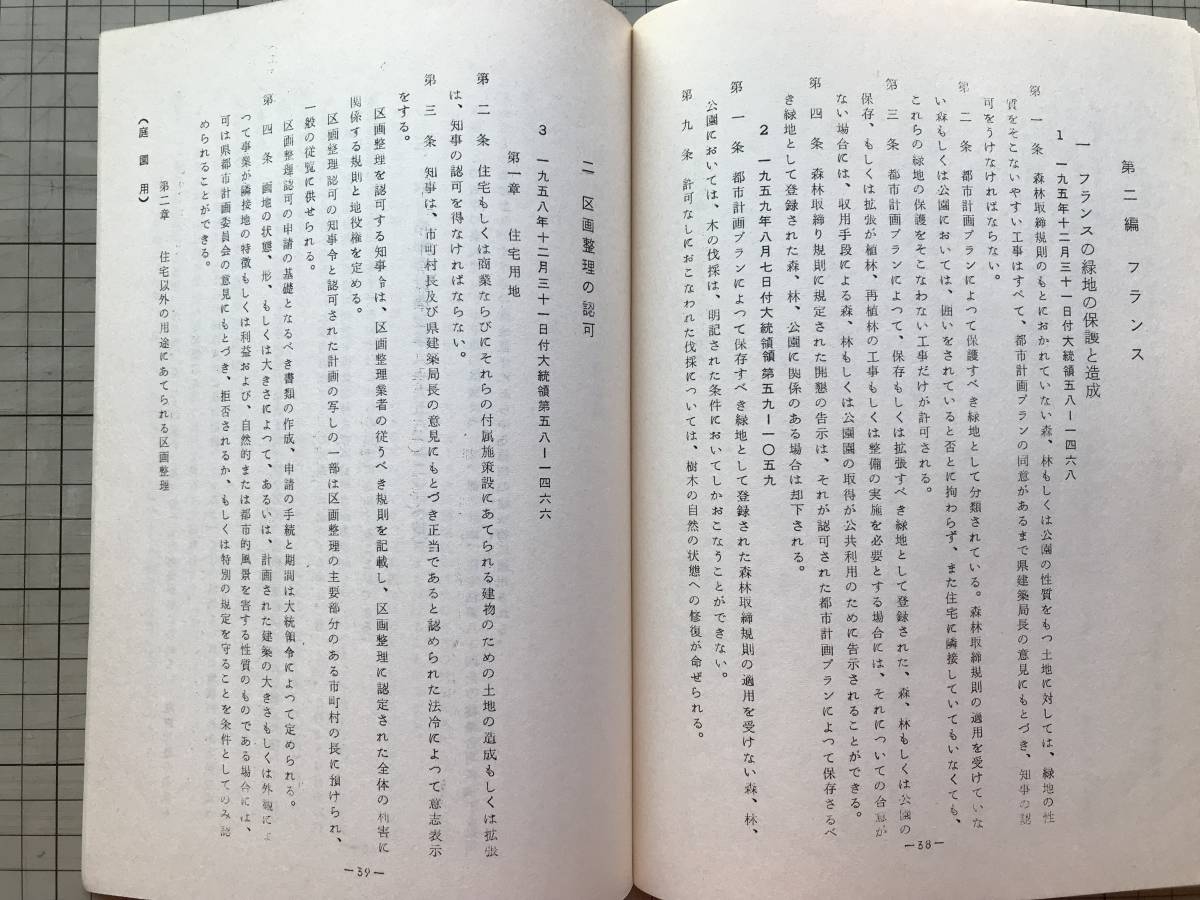 第二編　フランス
一　フランスの緑地の保護と造成
1　一九五年十二月三十一日付大統領五八ー一四六八
第　一　条　森林取締規則のもとにおかれていない森、林もしくは公園の性質をもつ土地に対しては、緑地の性
質をそこないやすい工事はすべて、都市計画プランの同意があるまで県建築局長の意見にもとづき、知事の認
可をうけなければならない。
第　二　条　都市計画プランによつて保護すべき緑地として分類されている。森林取締規則の適用を受けていな
い森もしくは公園においては、囲いをされていると否とに拘わらず、また住宅に隣接していてもいなくても、
これらの緑地の保護をそこなわない工事だけが許可される。
第　三　条　都市計画プランによつて、保存もしくは拡張すべき緑地として登録された、森、林もしくは公園の
保存、もしくは拡張が植林、再植林の工事もしくは整備の実施を必要とする場合には、それについての合意が
ない場合には、収用手段による森、林もしくは公園園の取得が公共利用のために告示されることができる。
第　四　条　森林取締り規則に規定された開懇の告示は、それが認可された都市計画プランによつて保存さるべ
き緑地として登録された森、林、公園に関係のある場合は却下される。
2　一九五九年八月七日付大統領領第五九ー一〇五九
第　一　条　都市計画プランによつて保存すべき緑地として登録された森林取締規則の適用を受けない森、林、
公園においては、木の伐採は、明記された条件においてしかおこなうことができない。
第　九　条　許可なしにおこなわれた伐採については、樹木の自然の状態への修復が命ぜられる。
—38—
二　区画整理の認可
3　一九五八年十二月三十一日付大統領第五八ー一四六六
第一章　住宅用地
第　二　条　住宅もしくは商業ならびにそれらの付属施策設にあてられる建物のための土地の造成もしくは拡張
は、知事の認可を得なければならない。
第　三　条　知事は、市町村長及び県建築局長の意見にもとづき正当であると認められた法冷によつて意志表示
をする。
区画整理を認可する知事令は、区画整理業者の従うべき規則を記載し、区画整理に認定された全体の利害に
関係する規則と地役権を定める。
区画整理認可の知事令と認可された計画の写しの一部は区画整理の主要部分のある市町村の長に預けられ、
一般の従覧に供せられる。
区画整理認可の申請の基礎となるべき書類の作成、申請の手続と期間は大統領令によつて定められる。
第　四　条　画地の状態、形、もしくは大きさによつて、あるいは、計画された建築の大きさもしくは外観によ
つて事業が隣接地の特徴もしくは利益および、自然的または都市的風景を害する性質のものである場合には、
可は県都市計画委員会の意見にもとづき、拒否されるか、もしくは特別の規定を守ることを条件としてのみ認
められることができる。
第二章　住宅以外の用途にあてられる区画整理
（庭園用）
—39—